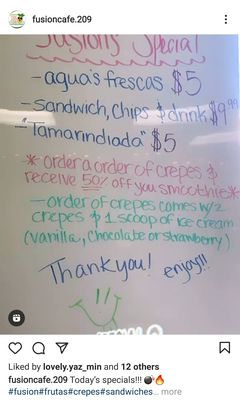 fusioncafe.209
Fusions Special
- agua's frescas $5
- Sandwich, Chips & drink $9.99
- "Tamarindiada" $5
* order a order of crepes &
receive 50% off you smoothie *
- order of crepes comes w/2
crepes & 1 scoop of ice cream
(vanilla, Chocolate or strawberry)
Thank you! enjoy!!
Liked by lovely.yaz_min and 12 others
fusioncafe.209 Today's specials!!! 💣🔥
#fusion#frutas#crepes#sandwiches... more